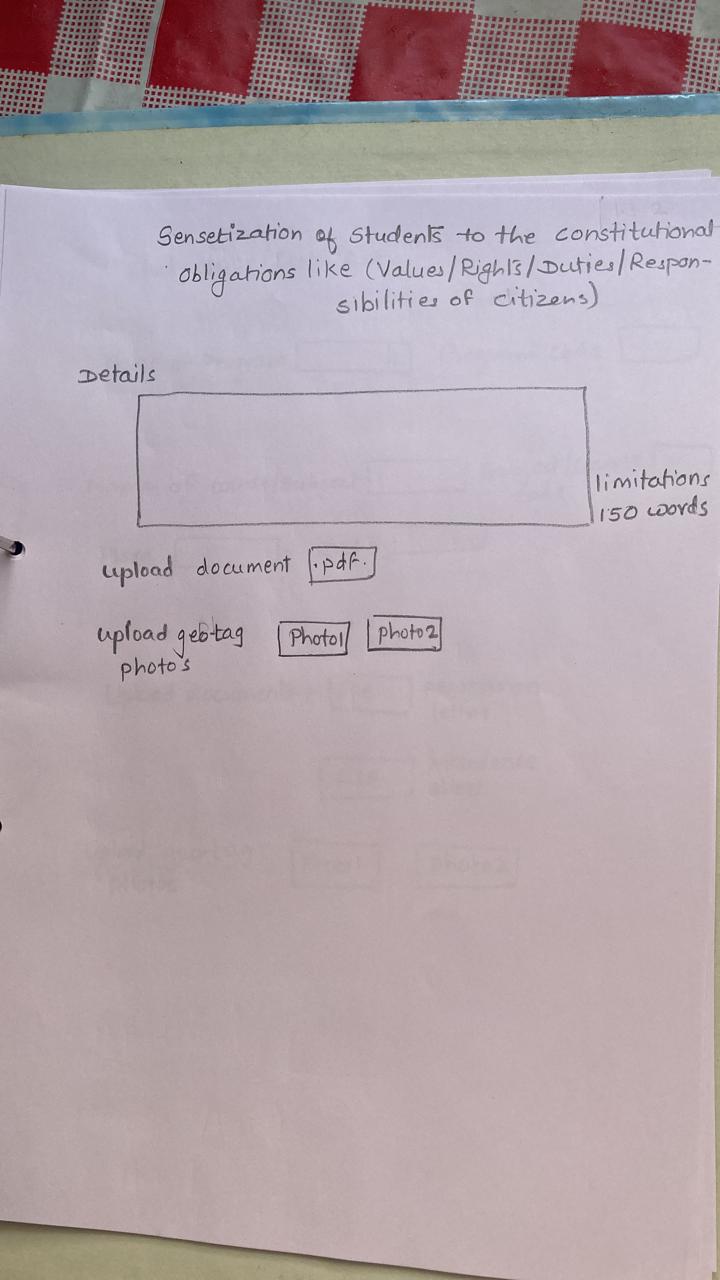 Sensetization of Students to the constitutional
obligations like (Values/Rights/Duties/Respon-
sibilities of citizens)
Details
limitations
150 words
upload document .pdf.
upload geo-tag Photo1 photo2
photo's